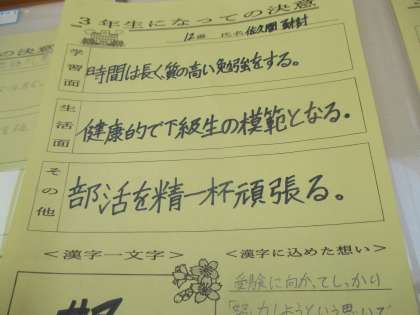 3年生になっての決意
12番 氏名 佐久間
学習面
時間は長く、質の高い勉強をする。
生活面
健康的で下級生の模範となる。
その他
部活を精一杯頑張る。
<漢字一文字>
<漢字に込めた想い>
受験に向かってしっかり
努力しようという思いで